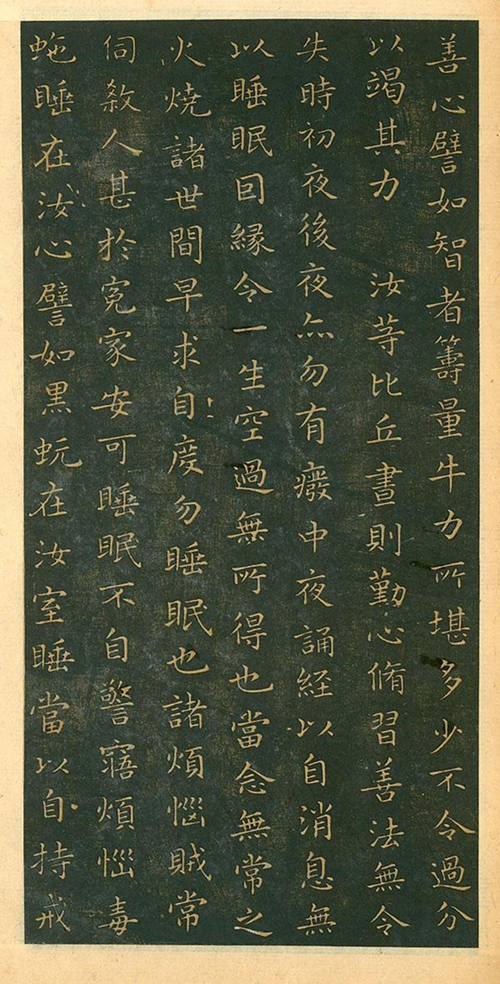 善心譬如智者籌量牛力所堪多少不令過分
以竭其力　汝等比丘晝則勤心脩習善法無令
失時初夜後夜亦勿有癈中夜誦経以自消息無
以睡眠因縁令一生空過無所得也當念無常之
火燒諸世間早求自度勿睡眠也諸煩惱賊常
伺殺人甚於寃家安可睡眠不自警寤煩惱毒
虵睡在汝心譬如黑蚖在汝室睡當以自持戒